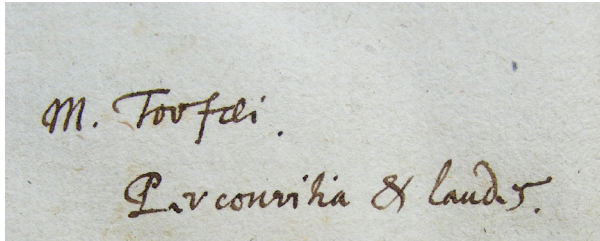 M. Torfæi.
Per convitia & laudes.